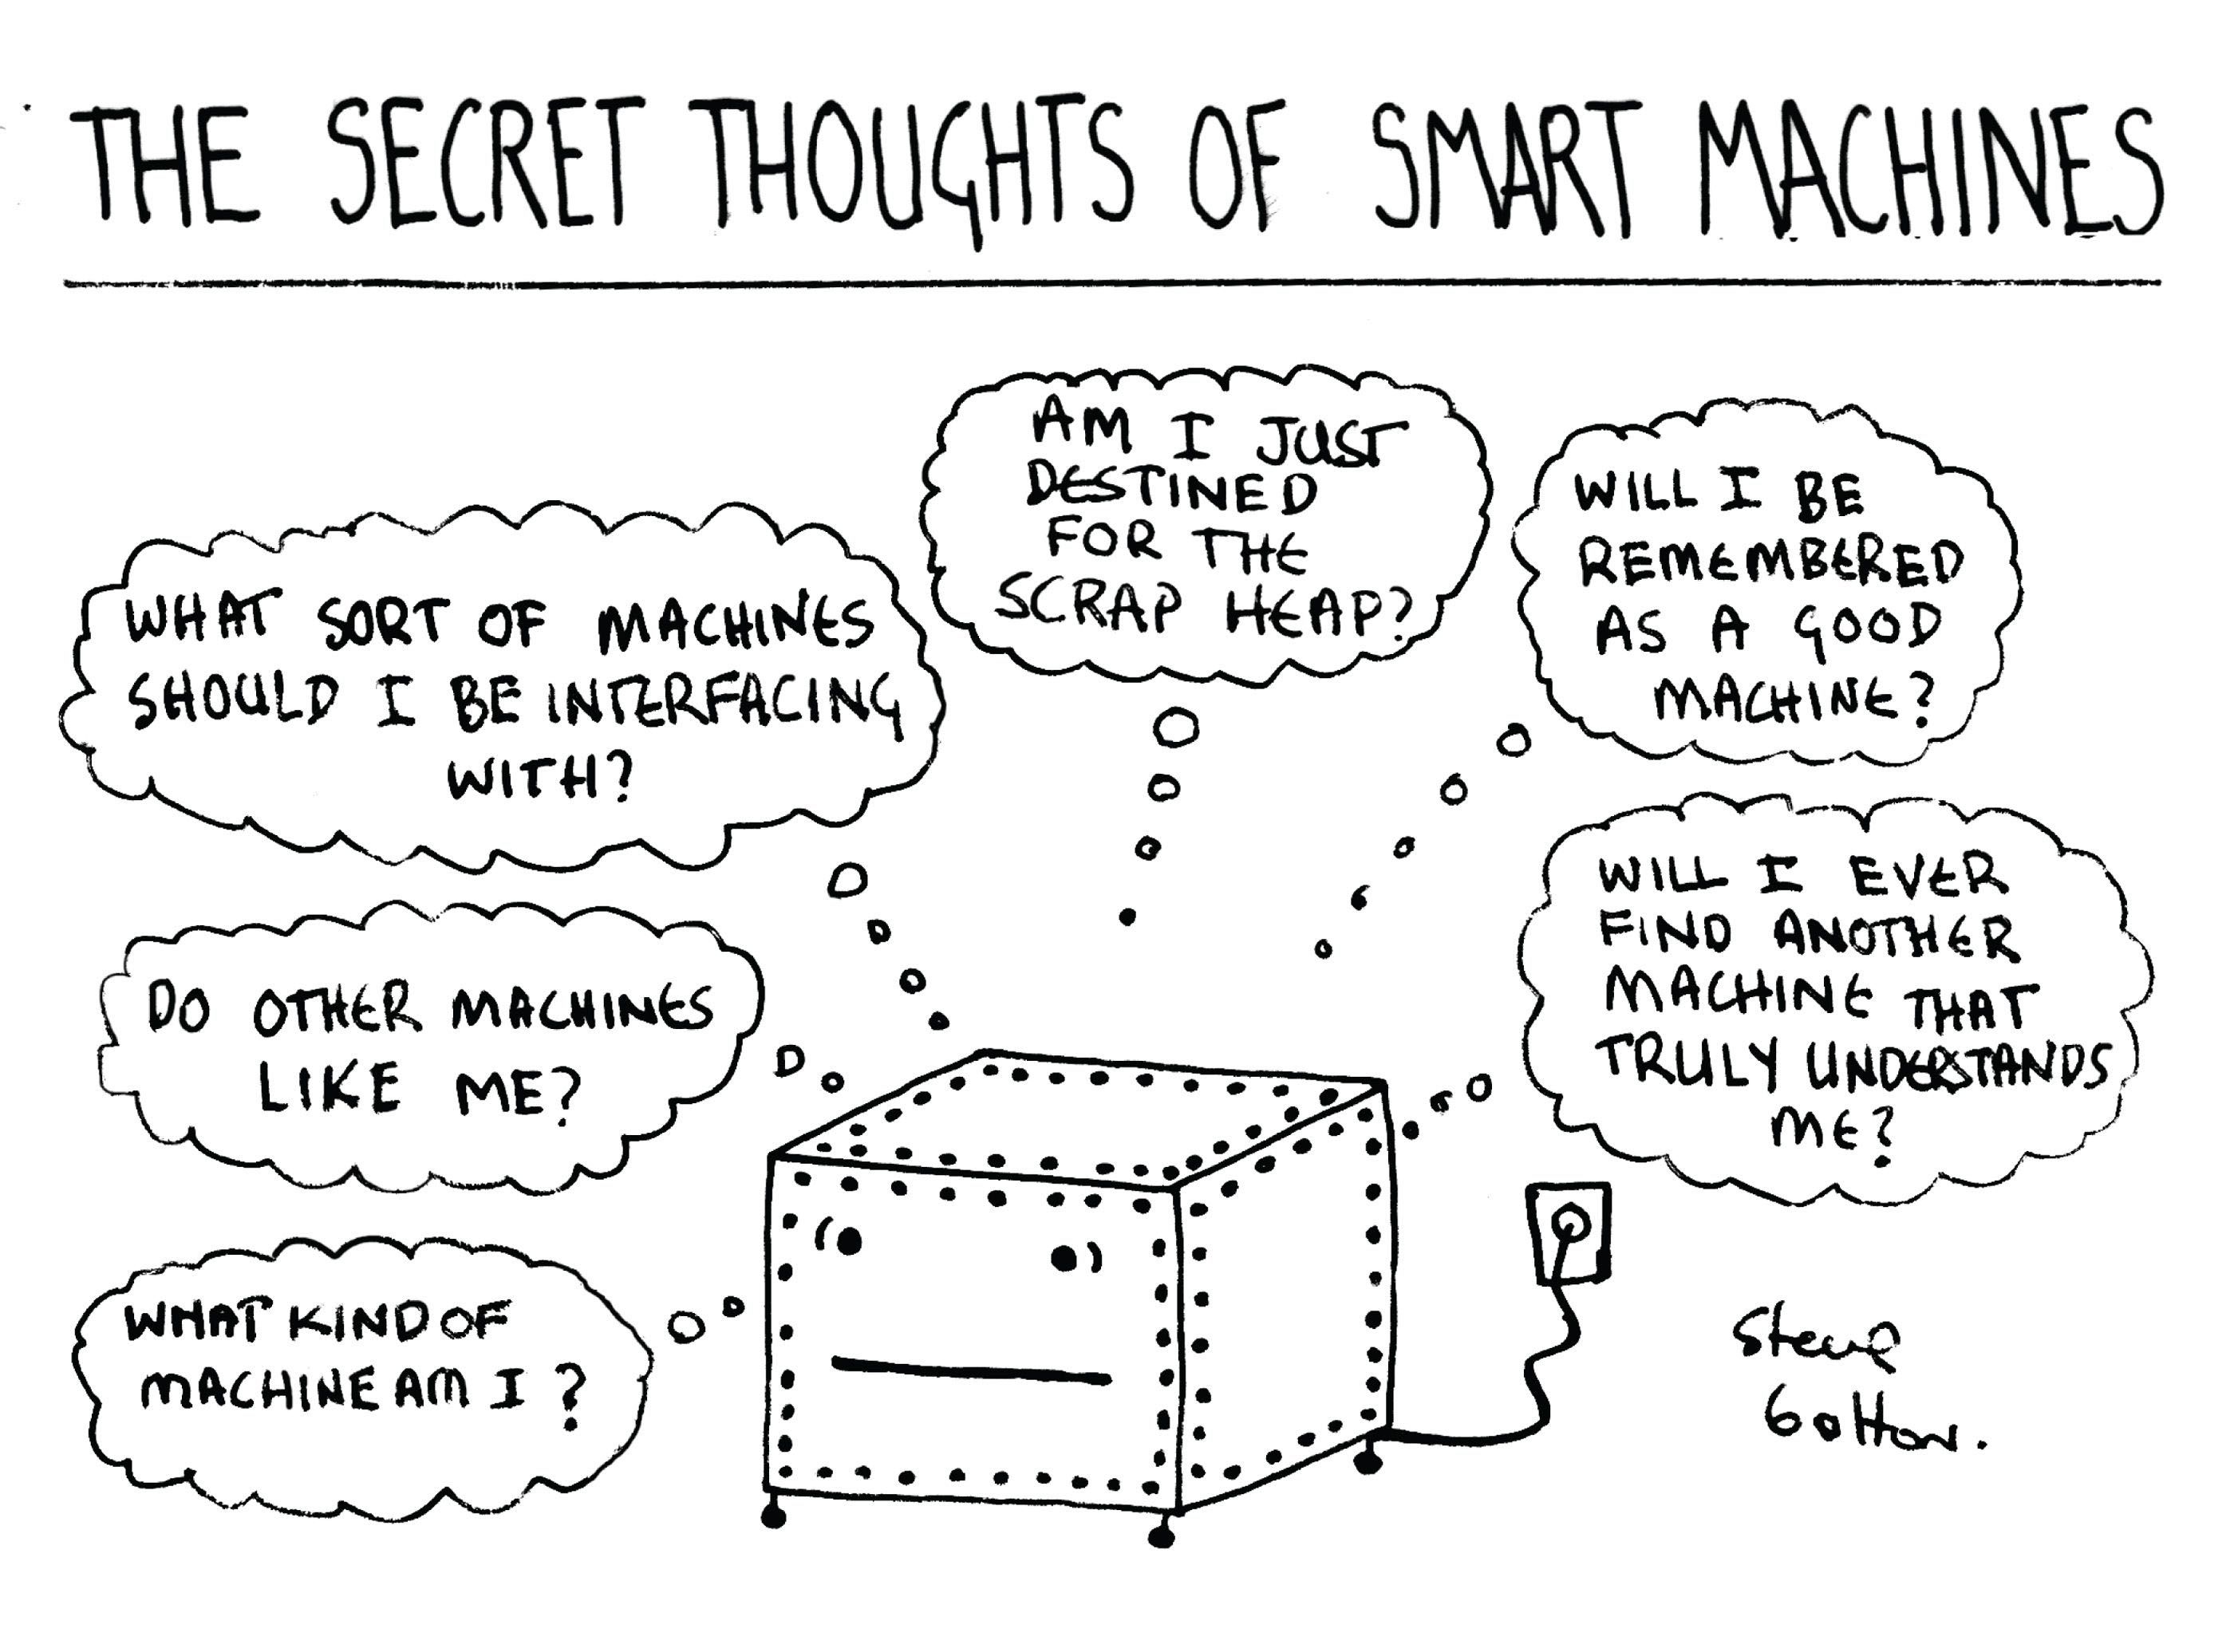 THE SECRET THOUGHTS OF SMART MACHINES
WHAT SORT OF MACHINES
SHOULD I BE INTERFACING
WITH?
AM I JUST
DESTINED
FOR THE
SCRAP HEAP?
WILL I BE
REMEMBERED
AS A GOOD
MACHINE?
DO OTHER MACHINES
LIKE ME?
WILL I EVER
FIND ANOTHER
MACHINE THAT
TRULY UNDERSTANDS
ME?
WHAT KIND OF
MACHINE AM I ?
Steve